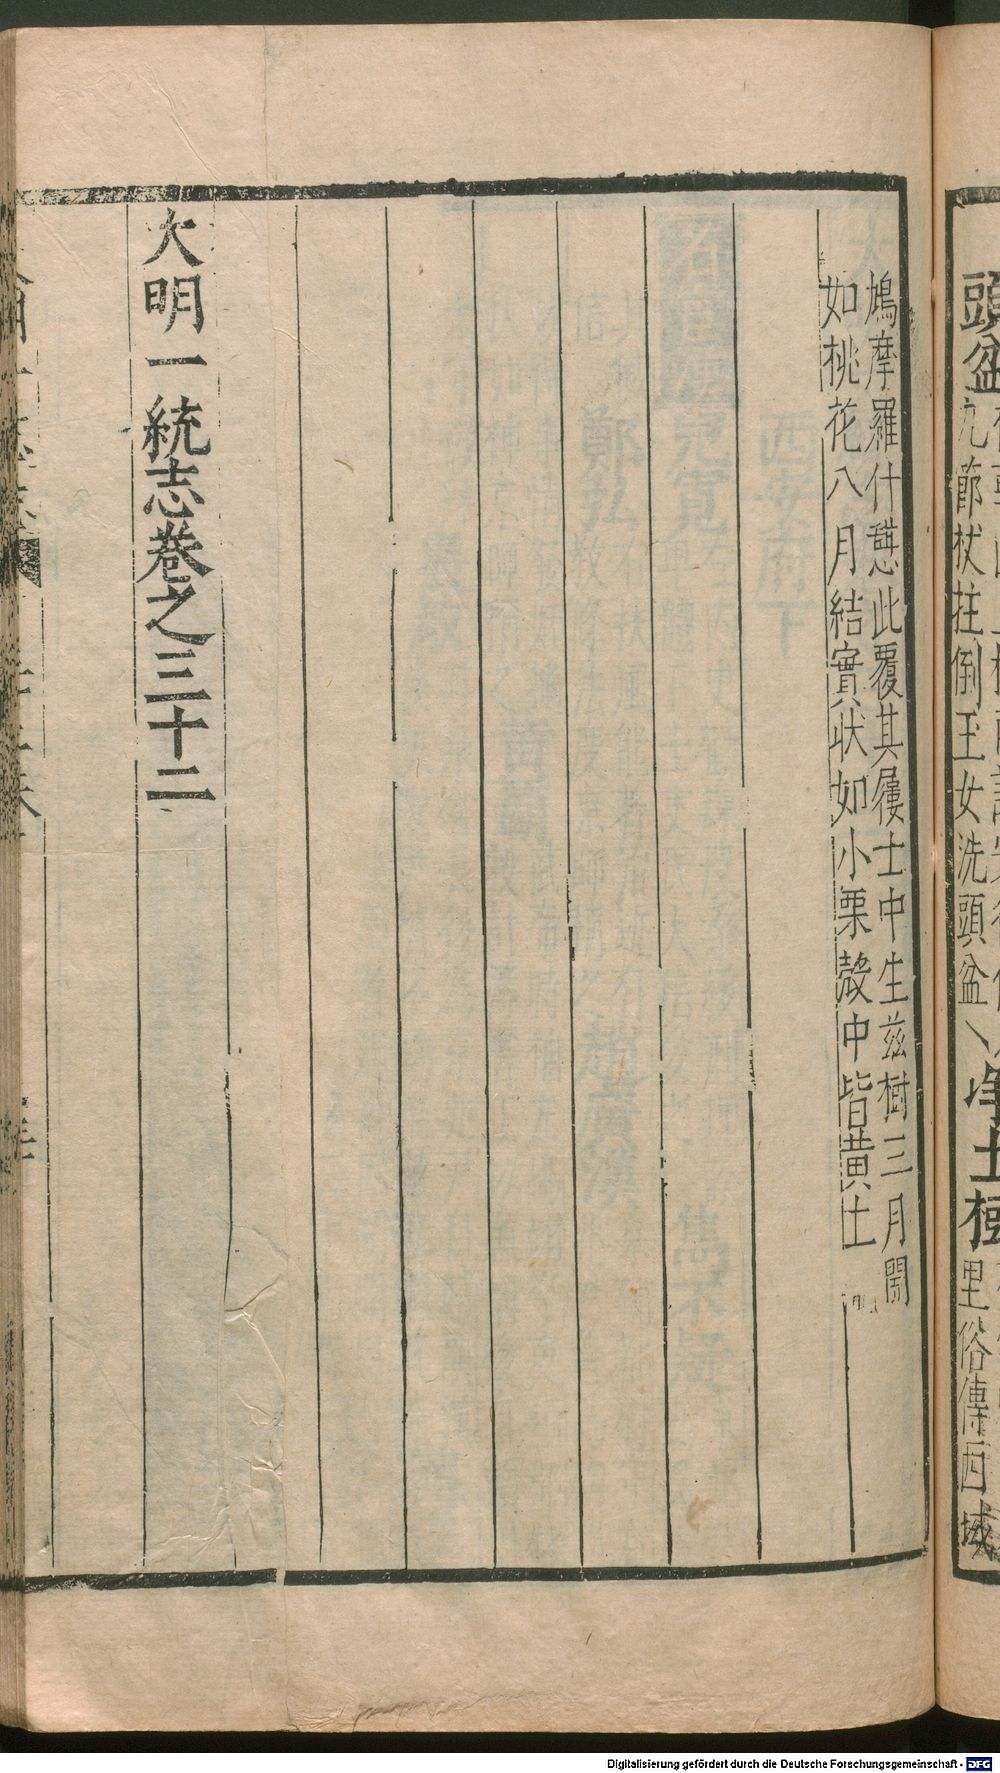 頭盆
九節杖拄倒玉女洗頭盆
土樹
里俗傳西域
鳩摩羅什憇此覆其屨土中生茲樹三月開
如桃花八月結實狀如小栗殼中皆黃土
大明一統志卷之三十二
Digitalisierung gefördert durch die Deutsche Forschungsgemeinschaft - DFG